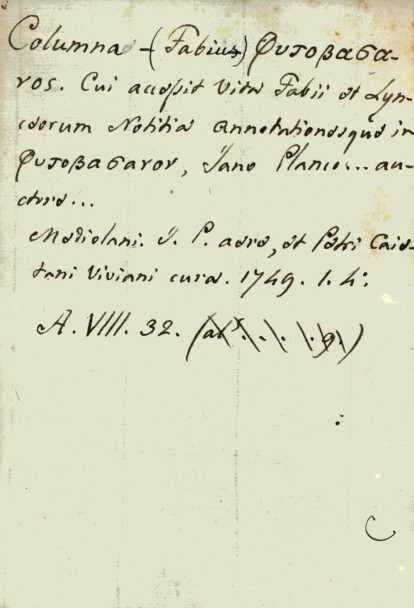 Columna - (Fabius) Φυτοβαςα-
νος. Cui accessit Vita Fabii et Lyn-
ceorum Notitia annotationesque in
Φυτοβαςανον, Iano Planco... au-
ctore...
Mediolani. I. P. aere, et Petri Caie-
tani Viviani cura. 1749. 1. 4:
A. VIII. 32.
C